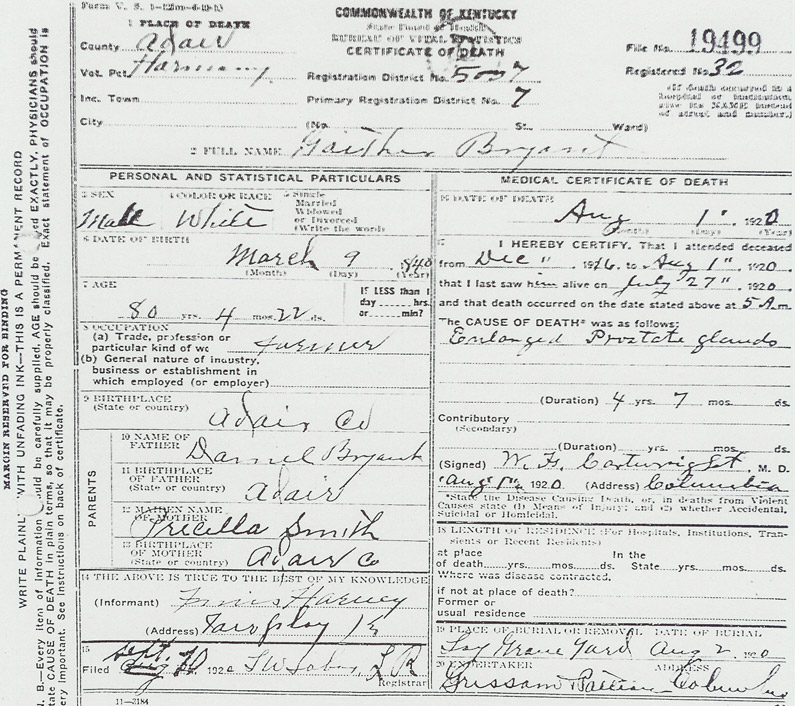 Form V. S.
COMMONWEALTH OF KENTUCKY
State Board of Health
BUREAU OF VITAL STATISTICS
CERTIFICATE OF DEATH
1 PLACE OF DEATH
County Adair
Vot. Pct. Harmony
Inc. Town
City
Registration District No. 5007
Primary Registration District No. 7
(No. St., Ward)
File No. 19499
Registered No. 32
(If death occurred in a
hospital or institution,
give its NAME instead
of street and number.)
2 FULL NAME Gaither Bryant
PERSONAL AND STATISTICAL PARTICULARS
3 SEX
Male
4 COLOR OR RACE
White
5 Single
Married
Widowed
or Divorced
(Write the word)
6 DATE OF BIRTH
March 9 1840
(Month) (Day) (Year)
7 AGE
80 yrs. 4 mos. 22 ds.
IF LESS than 1
day hrs.
or min?
8 OCCUPATION
(a) Trade, profession or
particular kind of wo farmer
(b) General nature of industry,
business or establishment in
which employed (or employer)
9 BIRTHPLACE
(State or country) Adair Co
PARENTS
10 NAME OF
FATHER Daniel Bryant
11 BIRTHPLACE
OF FATHER
(State or country) Adair
12 MAIDEN NAME
OF MOTHER Pricella Smith
13 BIRTHPLACE
OF MOTHER
(State or country) Adair Co
14 THE ABOVE IS TRUE TO THE BEST OF MY KNOWLEDGE
(Informant) Harvey
(Address)
15
Filed Sept. 10 1920 L R
Registrar
11-3184
MEDICAL CERTIFICATE OF DEATH
16 DATE OF DEATH
Aug 1" 1920
(Month) (Day) (Year)
17 I HEREBY CERTIFY, That I attended deceased
from Dec " 1916, to Aug 1" 1920
that I last saw him alive on July 27" 1920
and that death occurred on the date stated above at 5 A m.
The CAUSE OF DEATH* was as follows:
Enlarged Prostate glands
(Duration) 4 yrs. 7 mos. ds.
Contributory
(Secondary)
(Duration) yrs. mos. ds.
(Signed) W. F. Cartwright M. D.
Aug 1" 1920 (Address) Columbia
*State the Disease Causing Death, or, in deaths from Violent
Causes state (1) Means of Injury; and (2) whether Accidental,
Suicidal or Homicidal.
18 LENGTH OF RESIDENCE (For Hospitals, Institutions, Tran-
sients or Recent Residents)
at place In the
of death yrs. mos. ds. State yrs. mos. ds.
Where was disease contracted,
if not at place of death?
Former or
usual residence
19 PLACE OF BURIAL OR REMOVAL DATE OF BURIAL
Grave Yard Aug 2 1920
20 UNDERTAKER ADDRESS
Grissom
MARGIN RESERVED FOR BINDING
WRITE PLAINL WITH UNFADING INK—THIS IS A PERMANENT RECORD
N. B.—Every item of information should be carefully supplied. AGE should be stated EXACTLY. PHYSICIANS should
state CAUSE OF DEATH in plain terms, so that it may be properly classified. Exact statement of OCCUPATION is
very important. See instructions on back of certificate.